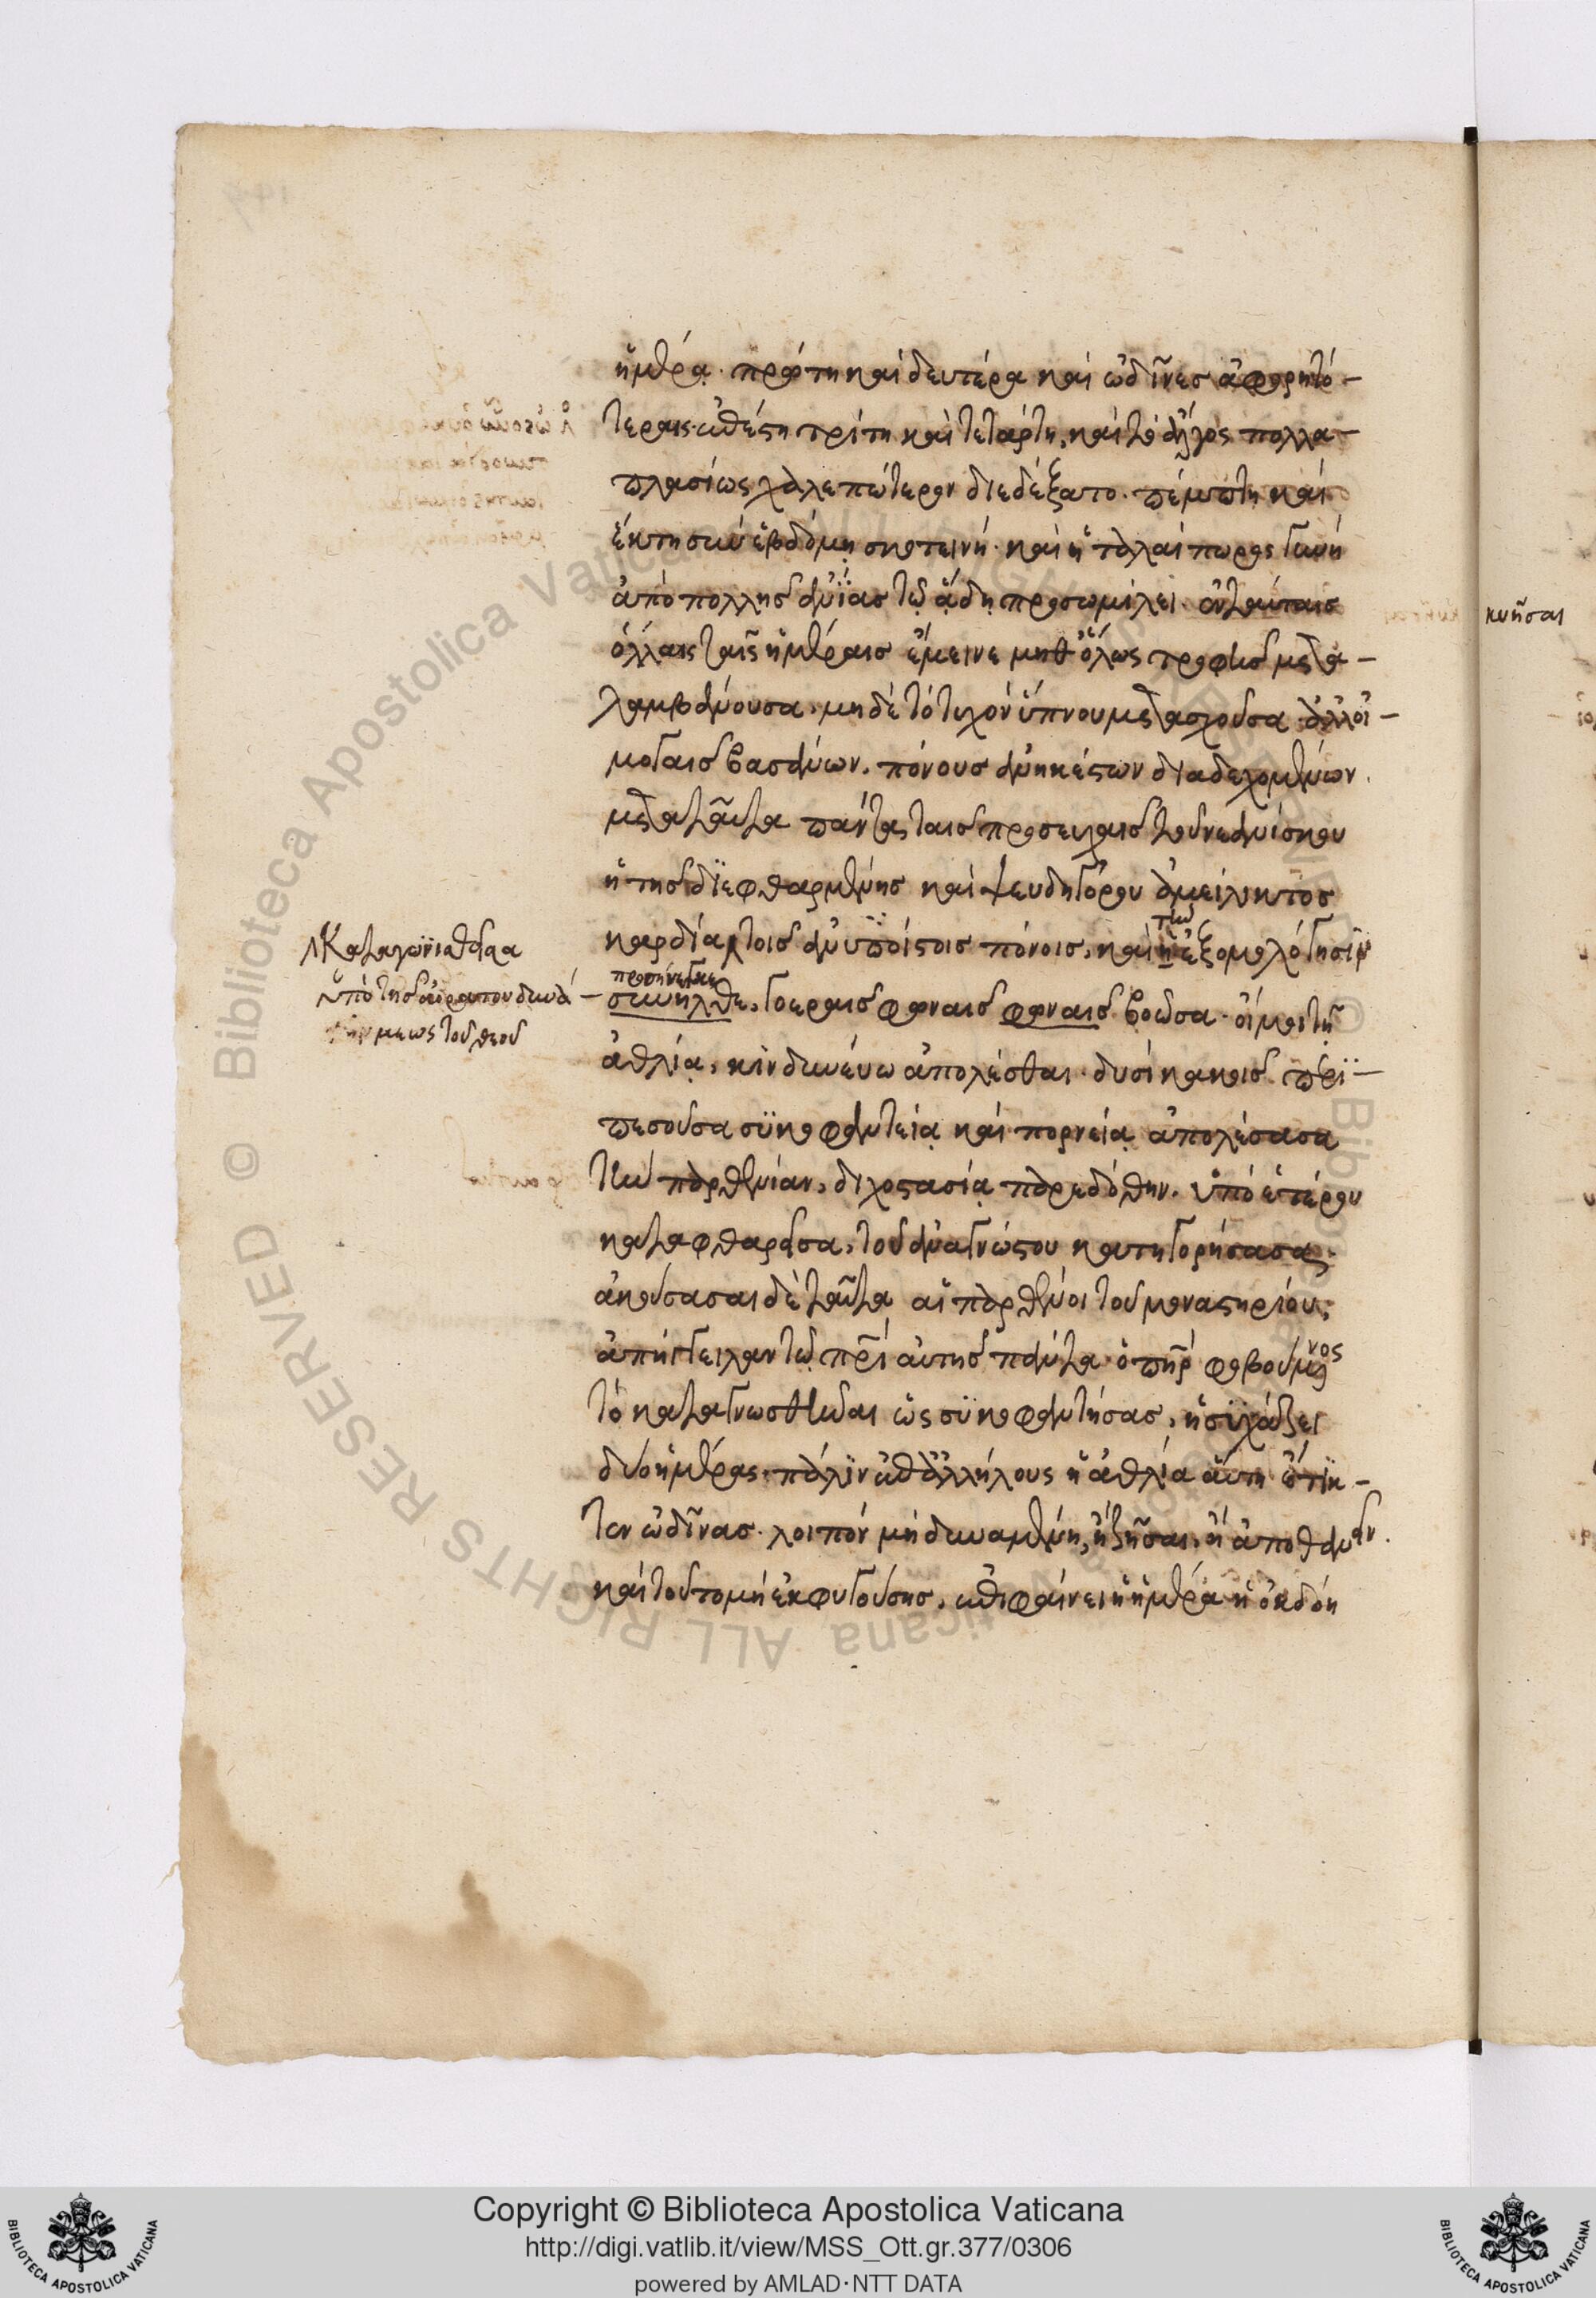 ἡμέρᾳ. πρώτη καὶ δευτέρα καὶ ὠδῖνες ἀφορητό-
τεραι. ἐπέστη τρίτη καὶ τετάρτη, καὶ τὸ ἄλγος πολλα-
πλασίως χαλεπώτερον διεδέξατο. πέμπτη καὶ
ἕκτη σὺν ἑβδόμῃ σκοτεινή. καὶ ἡ ταλαίπωρος γυνὴ
ἀπὸ πολλῆς ἀνίας τῷ ᾅδῃ προσωμίλει. ἐν ταύταις
ὅλαις ταῖς ἡμέραις ἔμεινε μηθ' ὅλως τροφῆς μετα-
λαμβάνουσα, μηδὲ τὸ τυχὸν ὕπνου μετασχοῦσα.
βασάνων. πόνους ἀνηκέστων διαδεχομένων.
μετὰ ταῦτα πάντας ταῖς προσευχαῖς τοῦ νεανίσκου
ἡ τῆς διεφθαρμένης καὶ ψευδηγόρου ἀμείλικτος
καρδία τοῖς ἀνυποίστοις πόνοις, καὶ ἡ τὴν ἐξομολόγησιν
προσήνεγκε
συνῆλθε, γοεραῖς φωναῖς φωναῖς βοῶσα. οἴμοι τῇ
ἀθλίᾳ, κινδυνεύω ἀπολέσθαι. δυσὶ κακοῖς περι-
πεσοῦσα συκοφαντείᾳ καὶ πορνείᾳ ἀπολέσασα
τὴν παρθενίαν, διχοστασίᾳ παρεδόθην. ὑπὸ ἑτέρου
καταφθαρεῖσα, τοῦ ἀναγνώστου κατηγορήσασα.
ἀκούσασαι δὲ ταῦτα αἱ παρθένοι τοῦ μοναστηρίου,
ἀπήγγειλαν τῷ πρὶ αὐτῆς πάντα. ὁ πηρ φοβούμενος
τὸ καταγνωσθῆναι ὡς συκοφαντήσας, ἡσυχάζει
δύο ἡμέρας. πάλιν ἐπαλλήλους ἡ ἀθλία αὕτη ἔτικ-
τεν ὠδῖνας. λοιπὸν μὴ δυναμένη, ἢ ζῆσαι, ἢ ἀποθανεῖν.
καὶ τοῦτο μὴ ἐκφυγούσης, ἐπιφαίνει ἡ ἡμέρα ἡ ὀγδόη
καταγωνισθεῖσα
ὑπὸ τῆς ἀοράτου δυνά-
μεως τοῦ θεοῦ
κυῆσαι
Copyright © Biblioteca Apostolica Vaticana
http://digi.vatlib.it/view/MSS_Ott.gr.377/0306
powered by AMLAD·NTT DATA
BIBLIOTECA APOSTOLICA VATICANA
BIBLIOTECA APOSTOLICA VATICANA
© Biblioteca Apostolica Vaticana ALL RIGHTS RESERVED